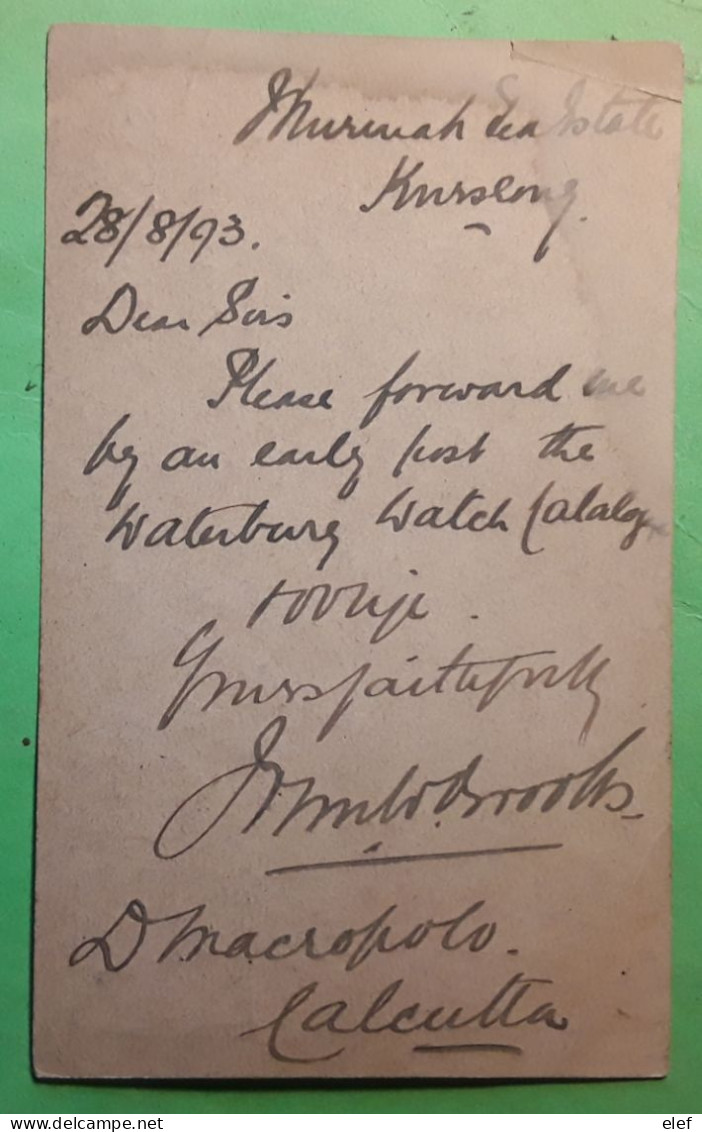 Murmah Tea Estate
Kurseong.
28/8/93.
Dear Sirs
Please forward me
by an early post the
Waterbury Watch Catalogue
& oblige.
Yours faithfully
John W. Brooks
D Macropolo.
Calcutta
www.delcampe.net
elef